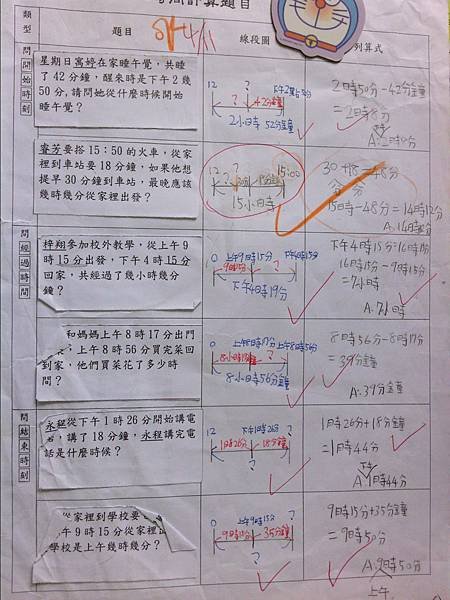 計算題目
類型
題目
線段圖
列算式
問開始時刻
星期日寓婷在家睡午覺,共睡
了42分鐘,醒來時是下午2點
50分,請問她從什麼時候開始
睡午覺?
12
?
42分鐘
2小時52分鐘
2時50分-42分鐘
=2時8分
A:2時0分
睿芳要搭15:50的火車,從家
裡到車站要18分鐘,如果他想
提早30分鐘到車站,最晚應該
幾時幾分從家裡出發?
12
?
15:00
15小時
30+18=48分
15時-48分=14時12分
A:14時12分
問經過時間
梓翔參加校外教學,從上午9
時15分出發,下午4時15分
回家,共經過了幾小時幾分
鐘?
0
上午9時15分
下午4時15分
?
下午4時19分
下午4時15分=16時15分
16時15分-9時15分
=7小時
A:7小時
和媽媽上午8時17分出門
,上午8時56分買完菜回
到家,他們買菜花了多少時
間?
上午8時17分
上午8時56分
?
8小時56分鐘
8時56分-8時17分
=39分鐘
A:39分鐘
問結束時刻
永程從下午1時26分開始講電
話,講了18分鐘,永程講完電
話是什麼時候?
12
下午1時26分
1時26分
18分鐘
?
1時26分+18分鐘
=1時44分
A:下午1時44分
從家裡到學校要
午9時15分從家裡
學校是上午幾時幾分?
0
上午9時15分
9時15分
35分鐘
?
9時15分+35分鐘
=9時50分
A:9時50分
上午